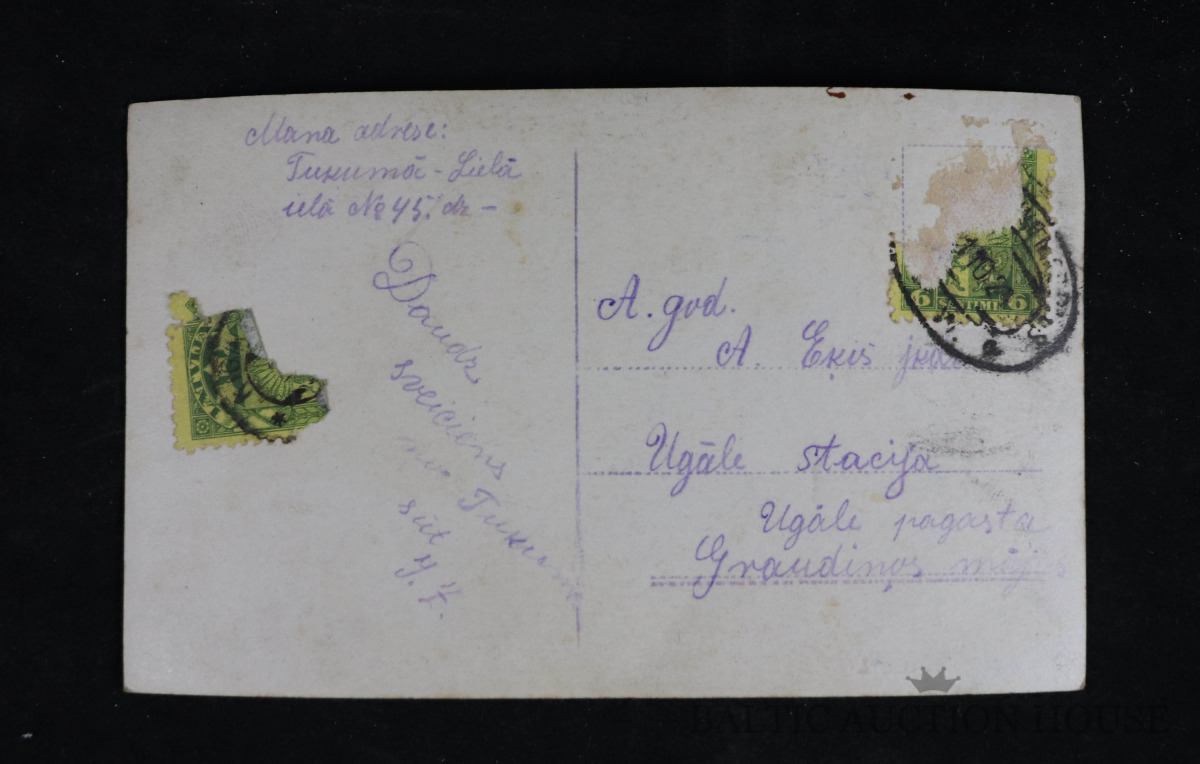 Mana adrese:
Tukumā - Lielā
ielā № 45. dz -
Daudz
sveiciens
no Tukuma
sūt
A. god.
A. Eķis
Ugāle stacija
Ugāle pagasta
Graudiņos mājās
6 SANTIMI 6
LATVIJA
BALTIC AUCTION HOUSE